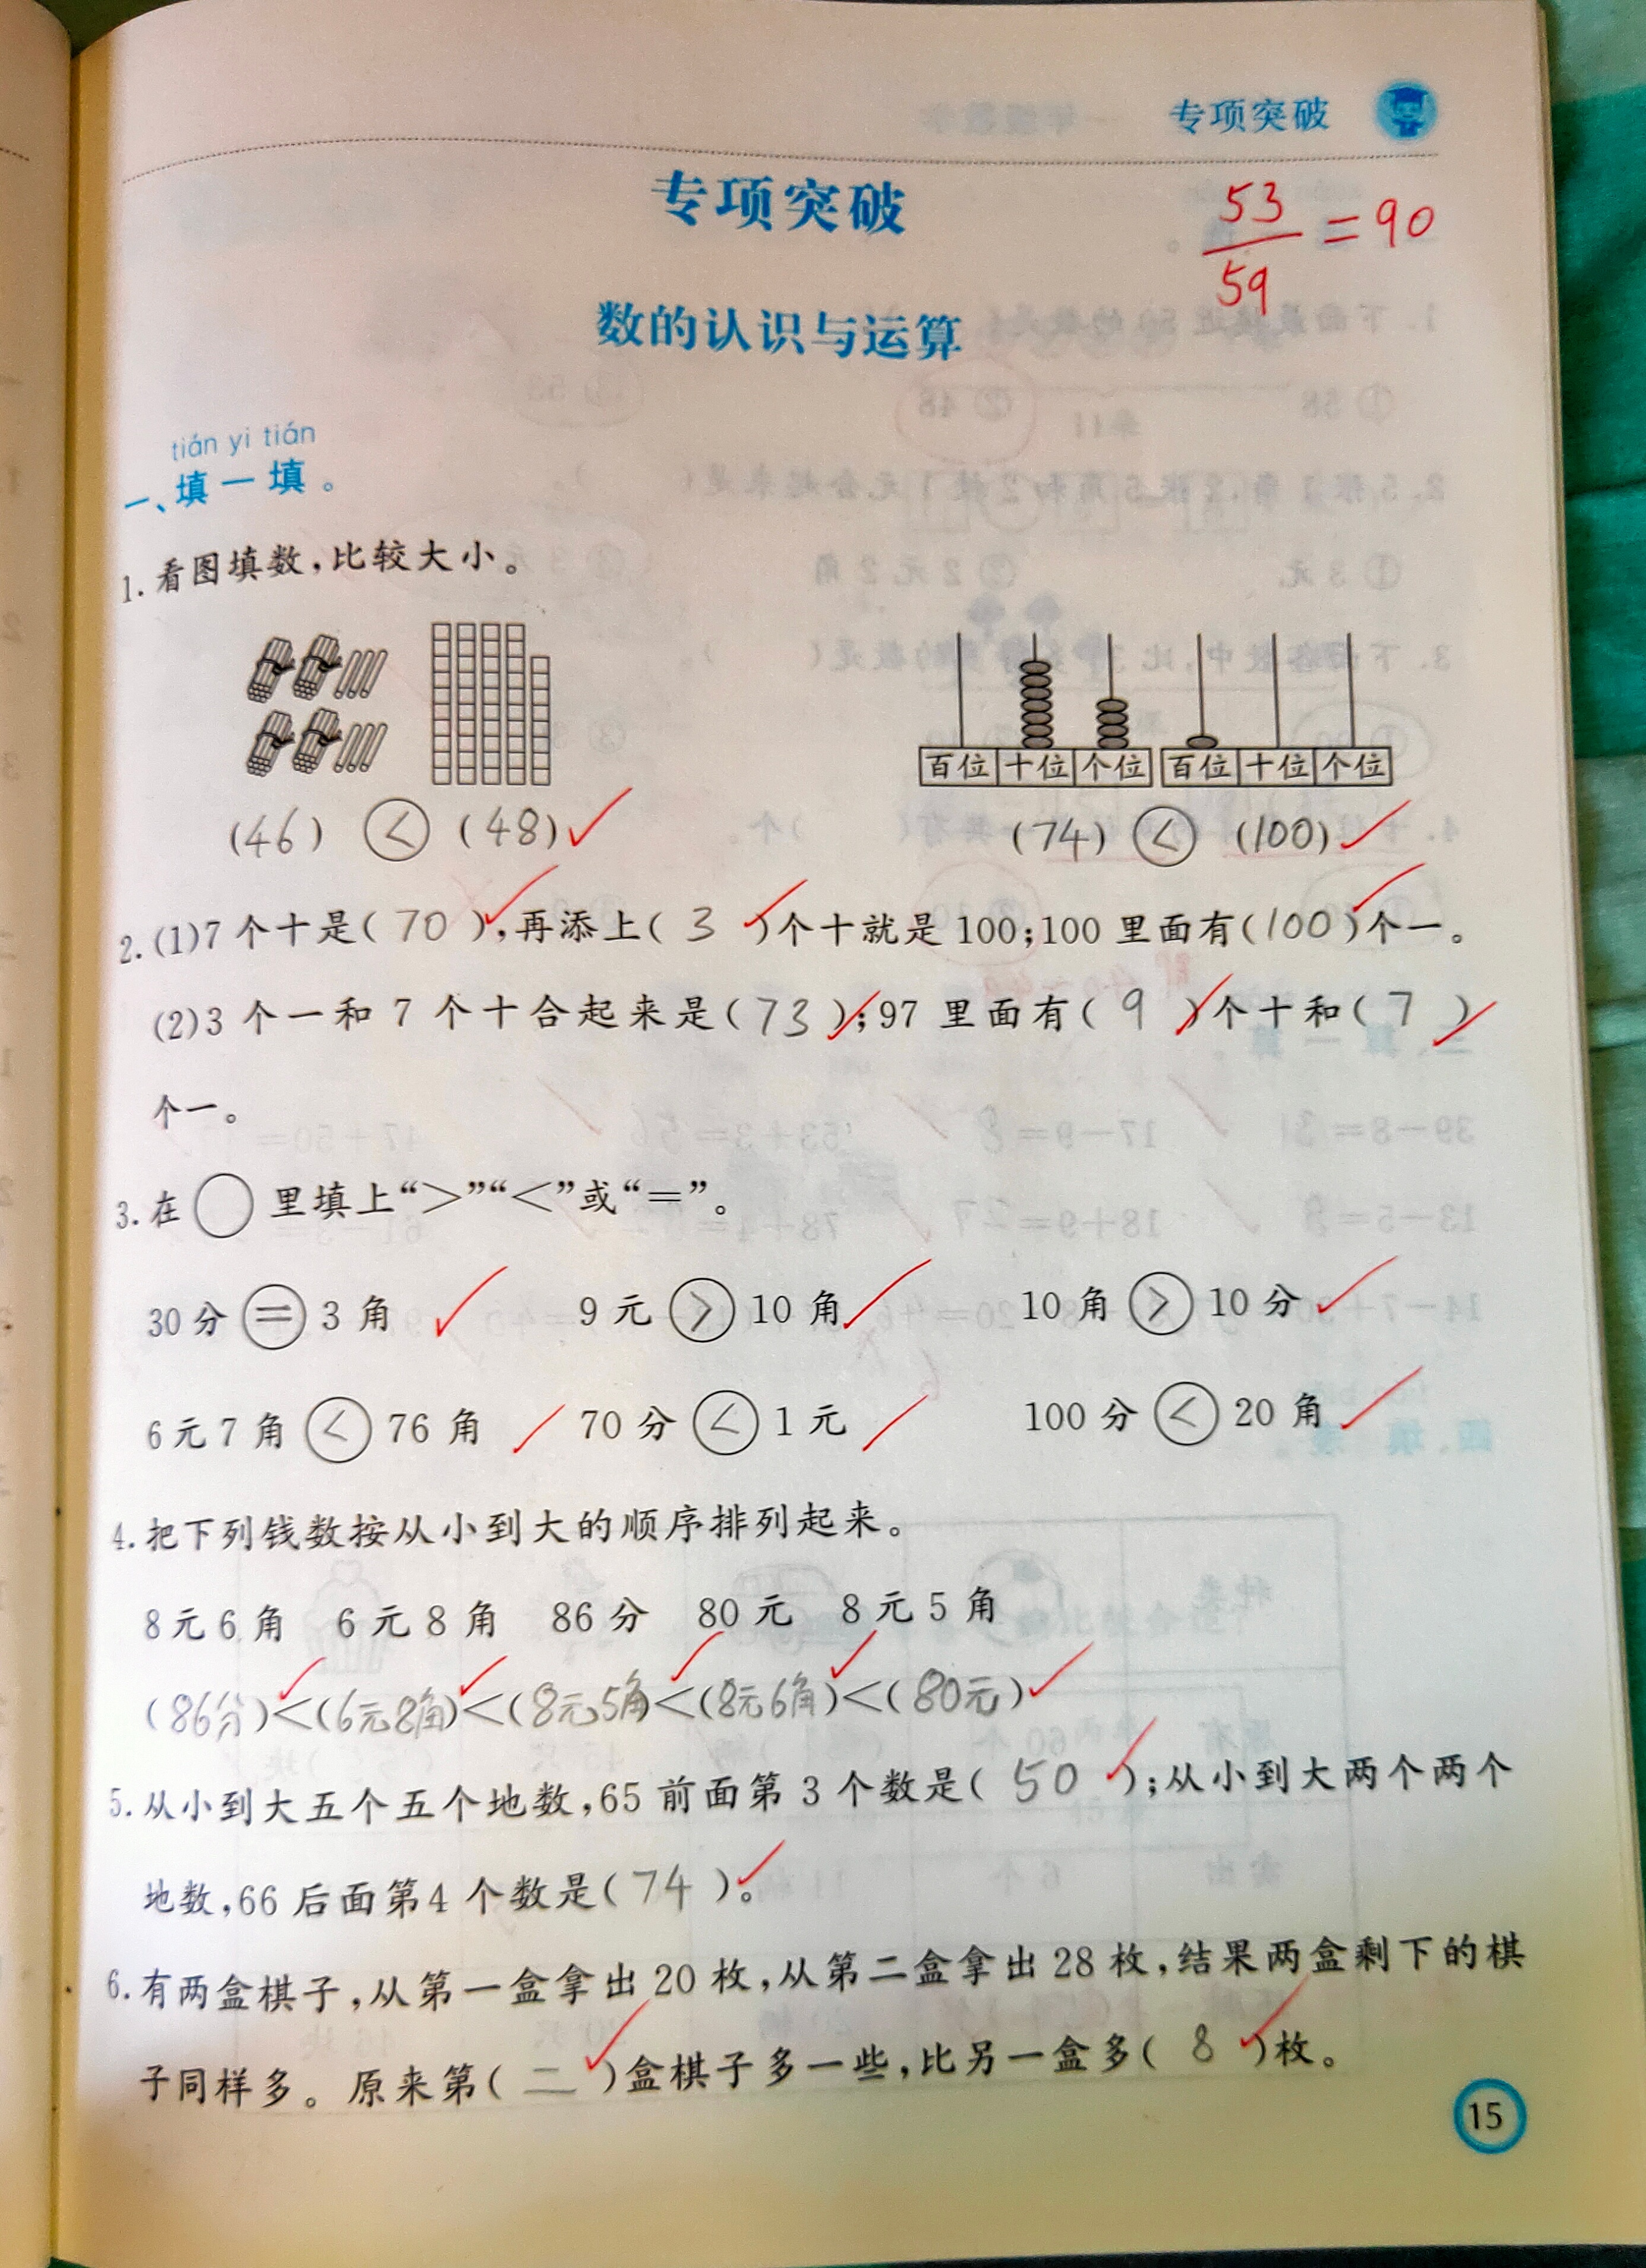 专项突破
专项突破
53
59
=90
数的认识与运算
tián yi tián
一、填一填。
1.看图填数,比较大小。
百位 十位 个位 百位 十位 个位
(46) < (48) (74) < (100)
2.(1)7个十是(70),再添上(3)个十就是100;100里面有(100)个一。
(2)3个一和7个十合起来是(73);97里面有(9)个十和(7)
个一。
3.在○里填上“>”“<”或“=”。
30分 = 3角 9元 > 10角 10角 > 10分
6元7角 < 76角 70分 < 1元 100分 < 20角
4.把下列钱数按从小到大的顺序排列起来。
8元6角 6元8角 86分 80元 8元5角
(86分)<(6元8角)<(8元5角)<(8元6角)<(80元)
5.从小到大五个五个地数,65前面第3个数是(50);从小到大两个两个
地数,66后面第4个数是(74)。
6.有两盒棋子,从第一盒拿出20枚,从第二盒拿出28枚,结果两盒剩下的棋
子同样多。原来第(二)盒棋子多一些,比另一盒多(8)枚。
15